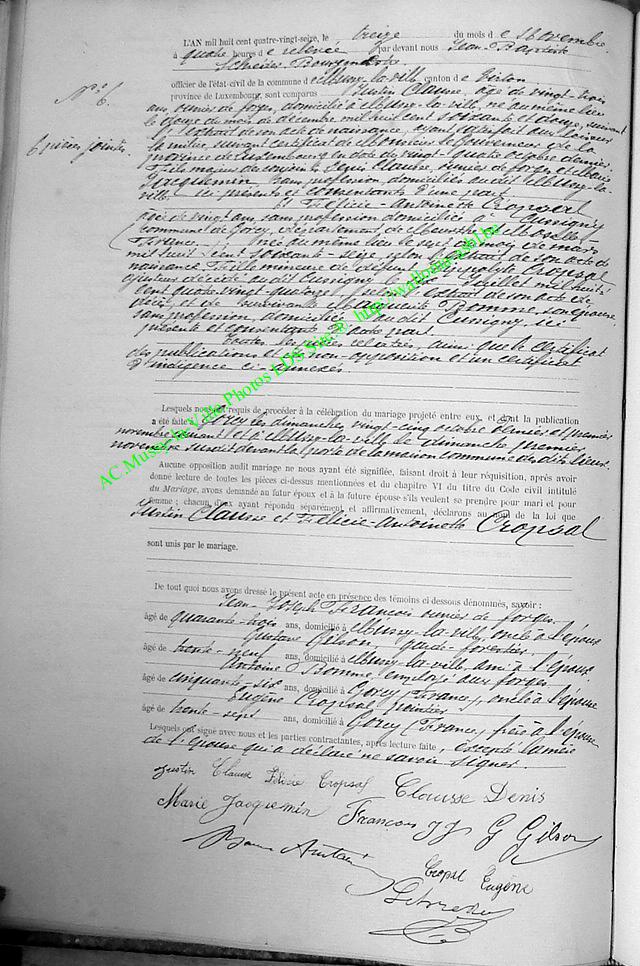 L'AN mil huit cent quatre-vingt-seize, le treize du mois de Novembre
à quatre heures de relevée par devant nous Jean-Baptiste
Bourgmestre
officier de l'état-civil de la commune de Mussy-la-ville canton de Virton
N° 6.
province de Luxembourg, sont comparus Justin Clausse, âgé de vingt-trois
ans, ouvrier de forges, domicilié à Mussy-la-ville, né au même lieu
le douze du mois de décembre mil huit cent soixante et douze, suivant
l'extrait de son acte de naissance, ayant satisfait aux lois sur
6 pièces jointes.
la milice, suivant certificat de Monsieur le Gouverneur de la
province de Luxembourg en date du vingt-quatre octobre dernier,
fils majeur des conjoints Denis Clausse, ouvrier de forges et Marie
Jacquemin, sans profession, domiciliés au dit Mussy-la-
ville, ici présents et consentants d'une part
Et Félicie-Antoinette Cropsal
âgée de vingt ans, sans profession, domiciliée à Cussigny
(commune de Gorcy, département de Meurthe-et-Moselle-
France), née au même lieu le sept du mois de mars
mil huit cent soixante-seize, selon l'extrait de son acte de
naissance, fille mineure de défunt Hippolyte Cropsal
décédé au dit Cussigny, le juillet mil huit
cent quatre-vingt quatorze, suivant extrait de son acte de
décès et de survivante Marguerite Bomme, son épouse,
sans profession, domiciliée au dit Cussigny, ici
présente et consentante d'autre part.
Toutes les pièces relatées, ainsi que le certificat
des publications et de non-opposition et un certificat
d'indigence ci-annexés.
Lesquels nous ont requis de procéder à la célébration du mariage projeté entre eux, et dont la publication
a été faite à Gorcy les dimanches vingt-cinq octobre dernier et premier
novembre courant et à Mussy-la-ville le dimanche premier
novembre susdit devant la porte de la maison commune des dits lieux.
Aucune opposition audit mariage ne nous ayant été signifiée, faisant droit à leur réquisition, après avoir
donné lecture de toutes les pièces ci-dessus mentionnées et du chapitre VI du titre du Code civil intitulé
du Mariage, avons demandé au futur époux et à la future épouse s'ils veulent se prendre pour mari et pour
femme ; chacun d'eux ayant répondu séparément et affirmativement, déclarons au nom de la loi que
Justin Clausse et Félicie-Antoinette Cropsal
sont unis par le mariage.
De tout quoi nous avons dressé le présent acte en présence des témoins ci dessous dénommés, savoir :
Jean Joseph François ouvrier de forges
âgé de quarante-trois ans, domicilié à Mussy-la-ville, oncle à l'époux
Gustave Gilson, garde-forestier
âgé de trente-neuf ans, domicilié à Mussy-la-ville ami à l'époux.
Antoine Bomme, employé aux forges
âgé de cinquante-six ans, domicilié à Gorcy (France), oncle à l'épouse
Eugène Cropsal, pointier
âgé de trente-sept ans, domicilié à Gorcy (France) frère à l'épouse
Lesquels ont signé avec nous et les parties contractantes, après lecture faite, excepté la mère
de l'épouse qui a déclaré ne savoir signer.
Justin Clausse Félicie Cropsal Clausse Denis
Marie Jacquemin François JJ G Gilson
Bomme Antoine
Cropsal Eugène
AC.Mussy-la-Ville Photos LDS Site ® http://wallonia-asbl.be